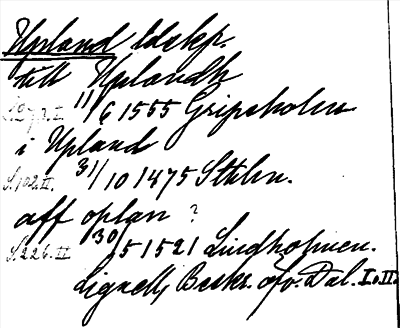 Upland ldskp.
till Uplandh
11/6 1555 Gripsholm
i Upland
S. 102. II. 31/10 1475 Sthlm.
aff oplan ?
S. 226. II 30/5 1521 Lindholmen.
Lignell, Beskr. öfv. Dal. I. II.